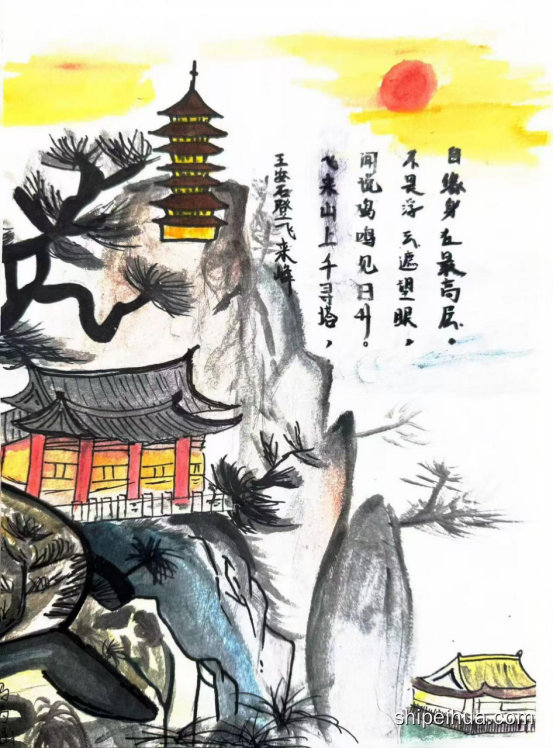 王安石登飞来峰
飞来山上千寻塔，
闻说鸡鸣见日升。
不是浮云遮望眼，
自缘身在最高层。
shipeihua.com